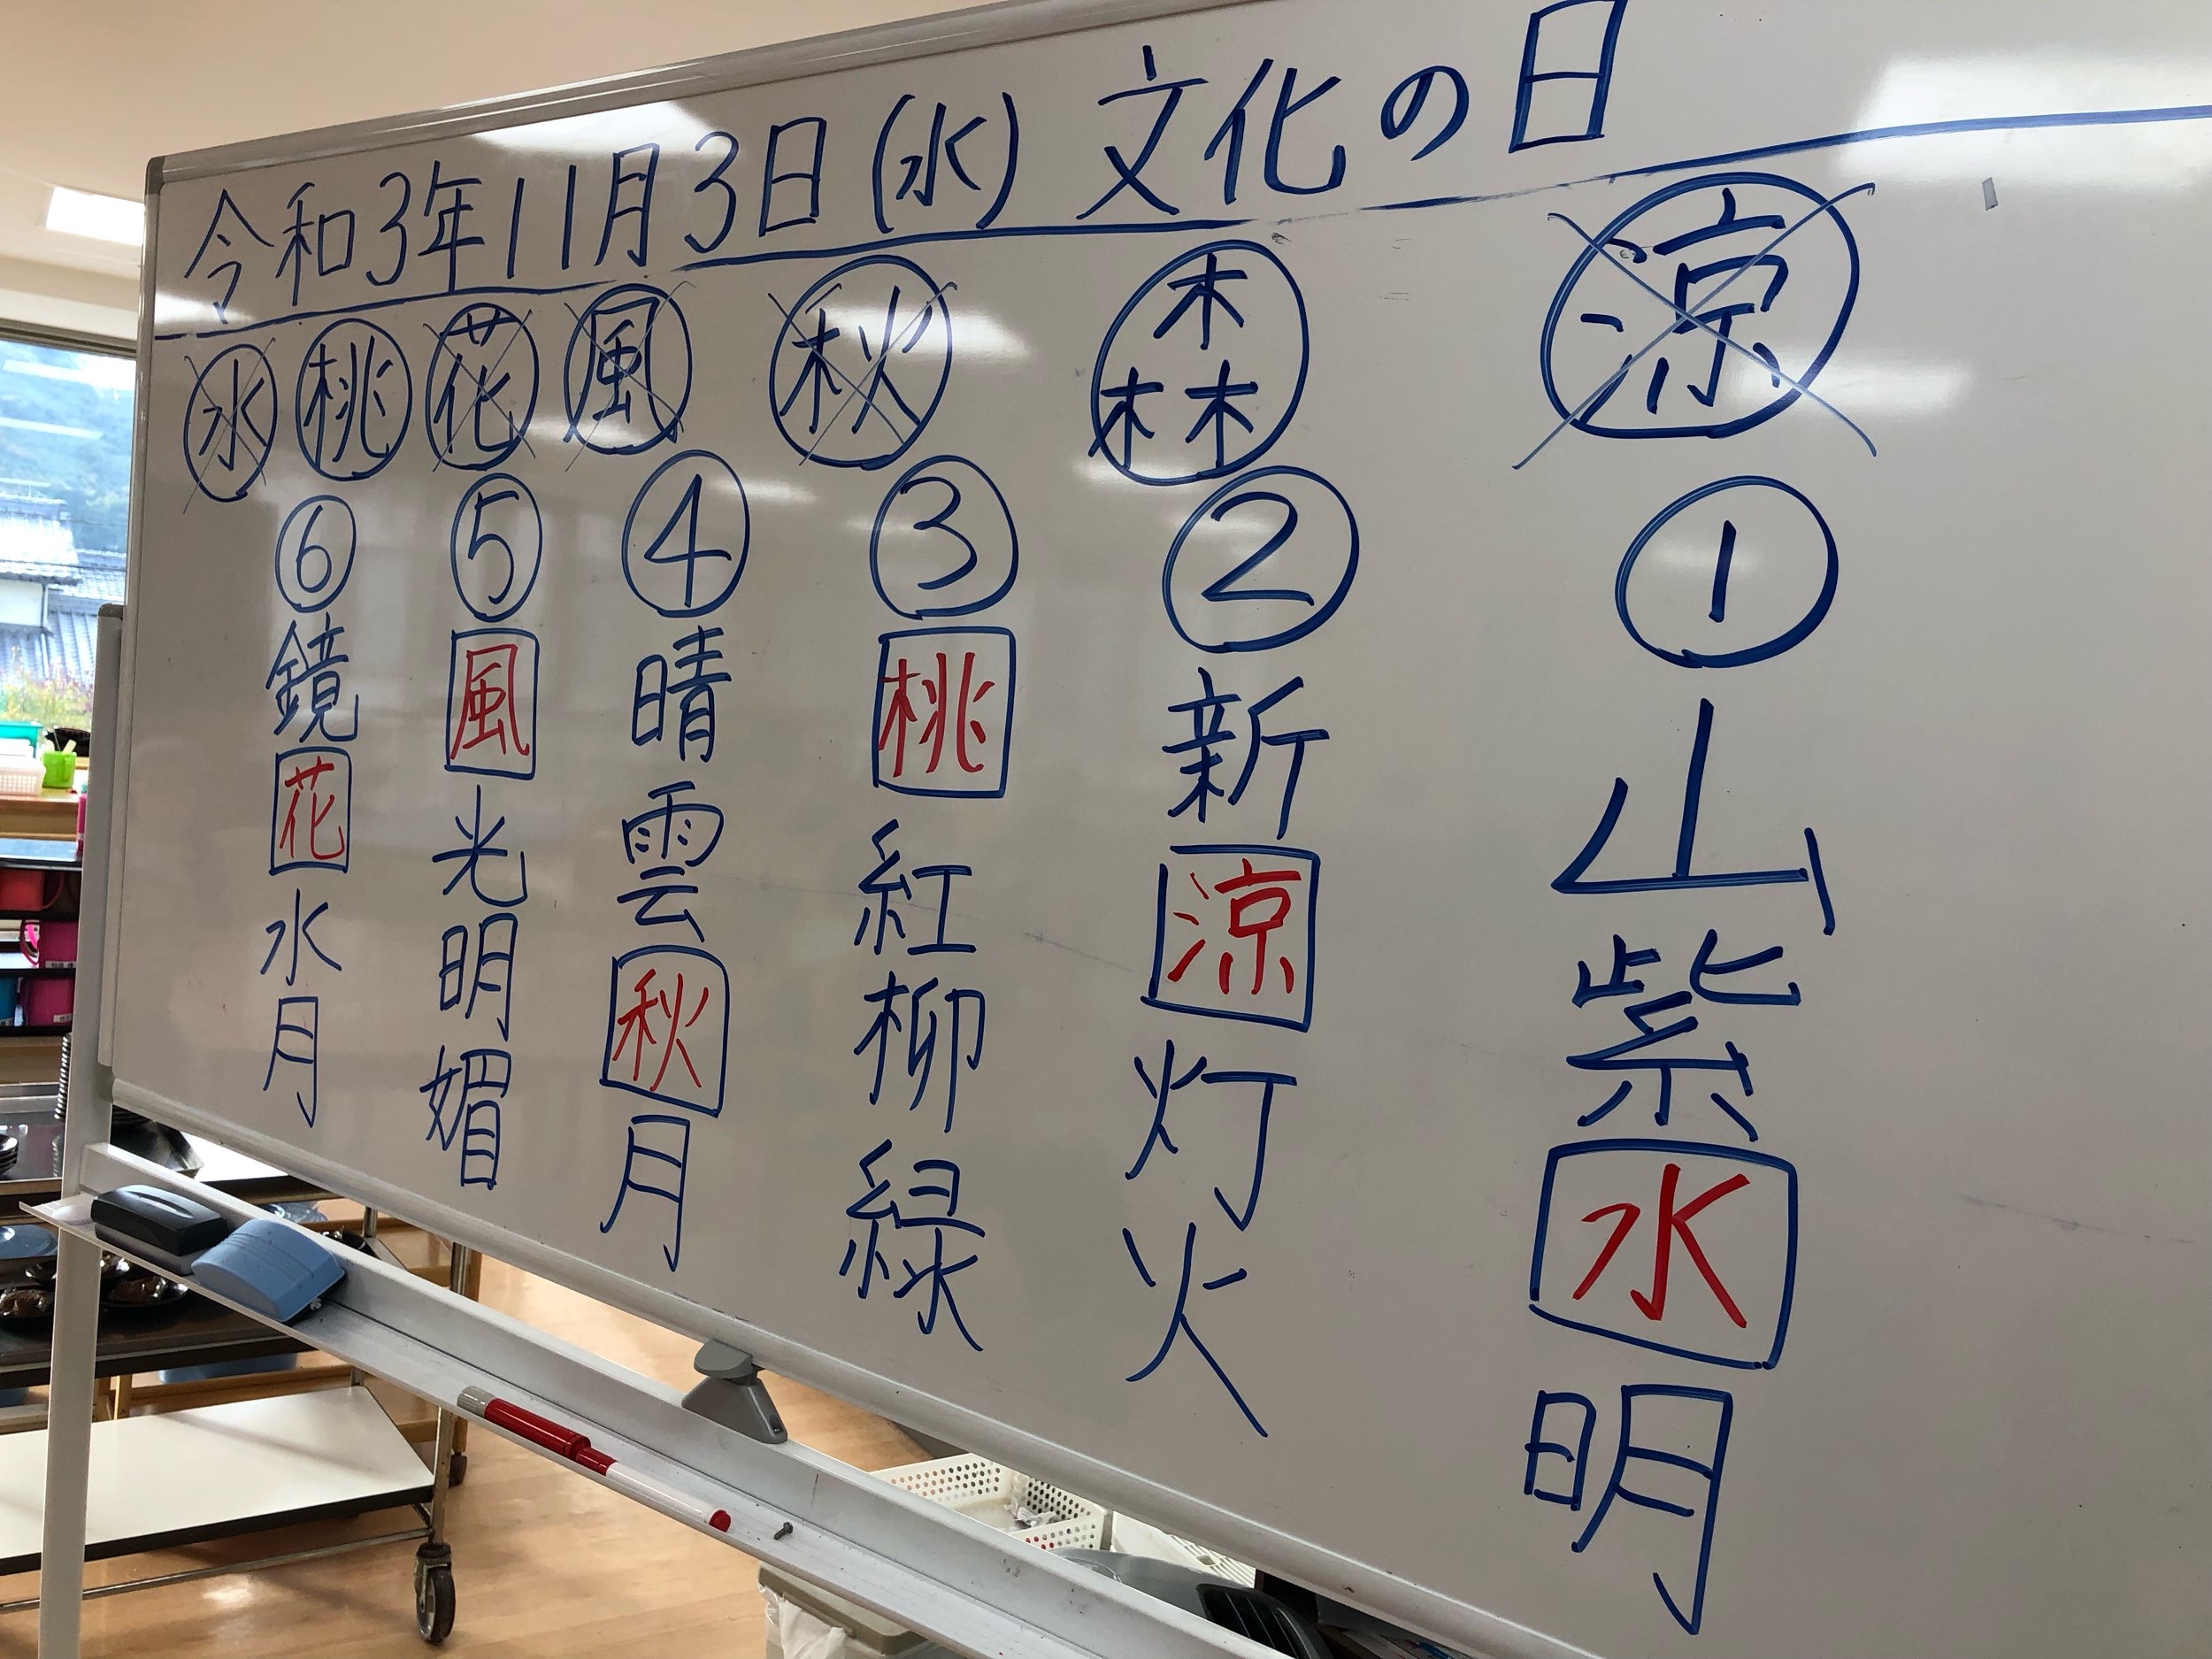 令和3年11月3日(水) 文化の日
涼 森 秋 風 花 桃 水
① 山紫水明
② 新涼灯火
③ 桃紅柳緑
④ 晴雲秋月
⑤ 風光明媚
⑥ 鏡花水月